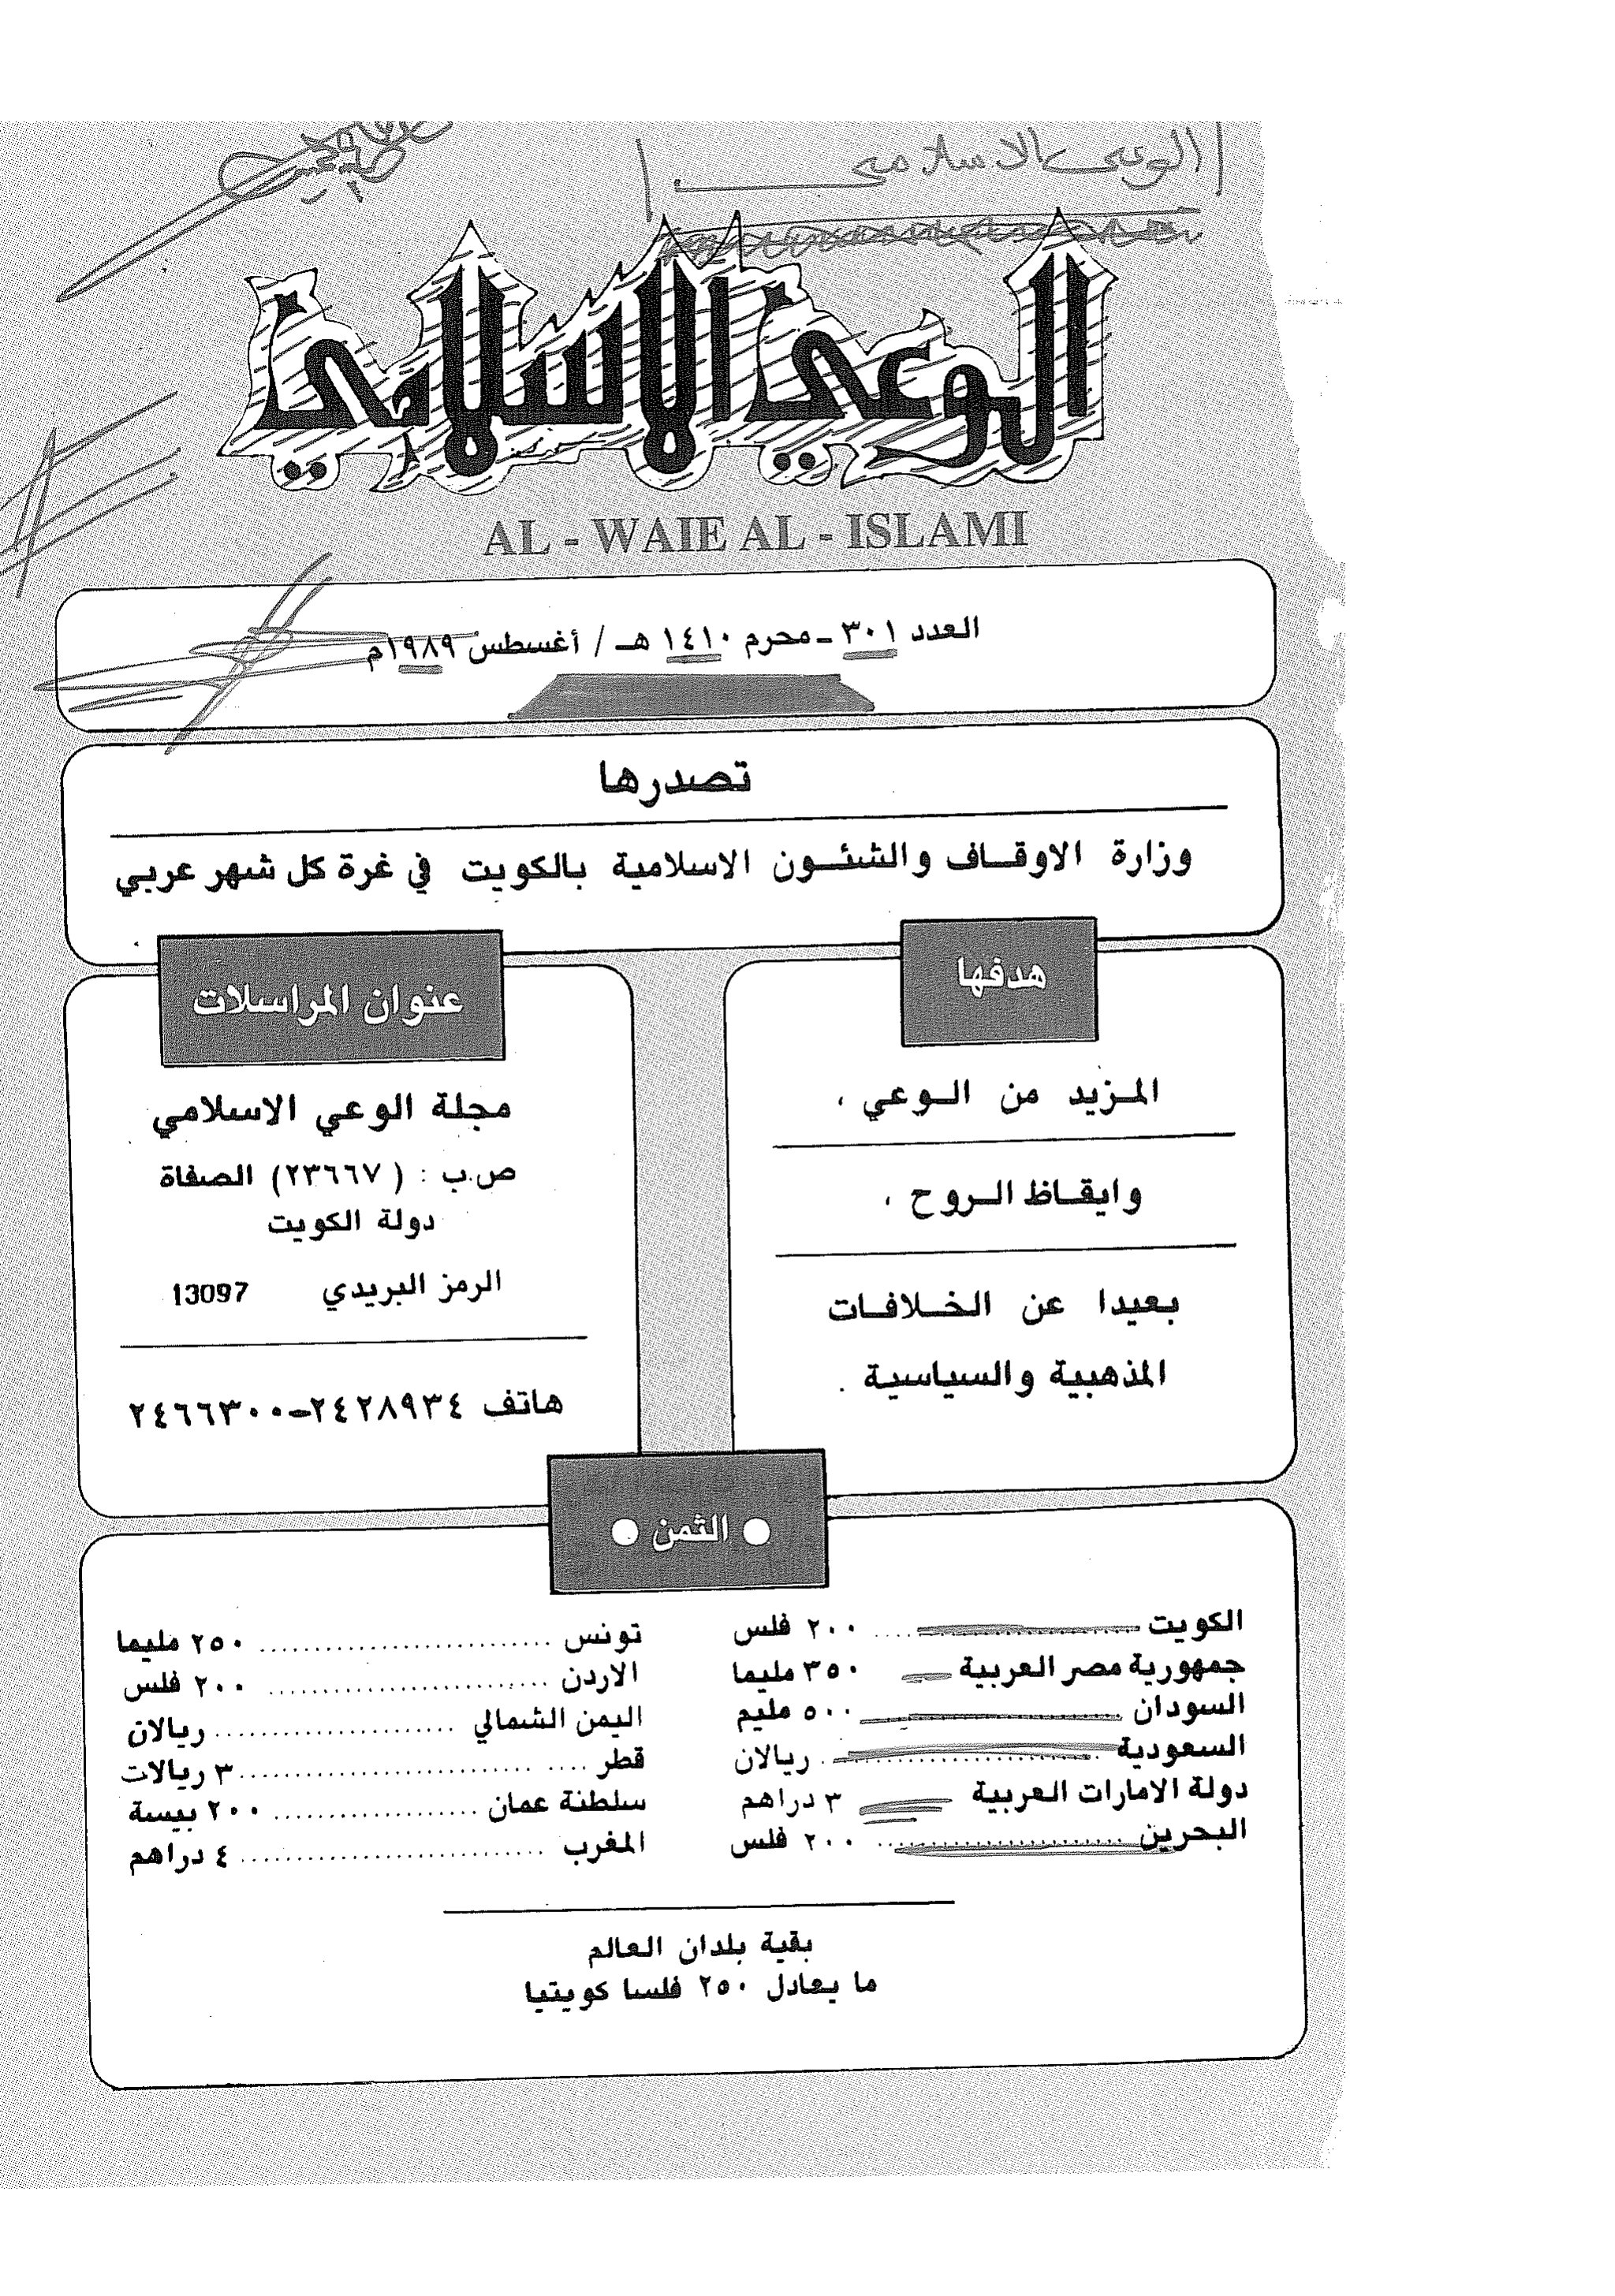 الوعى الاسلامى
الوعي الاسلامي
AL - WAIE AL - ISLAMI
العدد ٣٠١ - محرم ١٤١٠ هـ / أغسطس ١٩٨٩م
تصدرها
وزارة الاوقـاف والشئـون الاسلامية بالكويت في غرة كل شهر عربي
هدفها
المـزيد من الـوعي ،
وايقـاظ الـروح ،
بـعيدا عن الخـلافـات
المذهبية والسياسية .
عنوان المراسلات
مجلة الوعي الاسلامي
ص.ب : (٢٣٦٦٧) الصفاة
دولة الكويت
الرمز البريدي 13097
هاتف ٢٤٢٨٩٣٤-٢٤٦٦٣٠٠
● الثمن ●
الكويت ٢٠٠ فلس
جمهورية مصر العربية ٣٥٠ مليما
السودان ٥٠٠ مليم
السعودية ريالان
دولة الامارات العربية ٣ دراهم
البحرين ٢٠٠ فلس
تونس ٢٥٠ مليما
الاردن ٢٠٠ فلس
اليمن الشمالي ريالان
قطر ٣ ريالات
سلطنة عمان ٢٠٠ بيسة
المغرب ٤ دراهم
بقية بلدان العالم
ما يعادل ٢٥٠ فلسا كويتيا